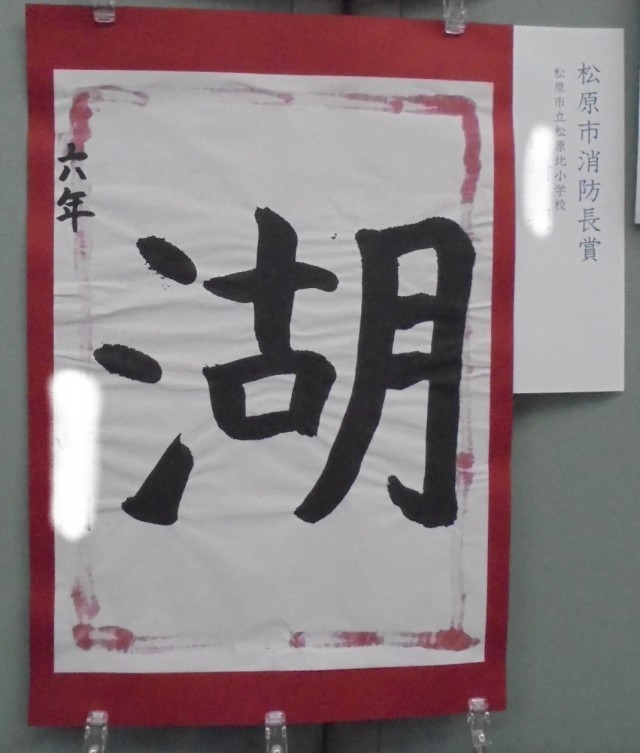 松原市消防長賞
松原市立松原北小学校
湖
六年